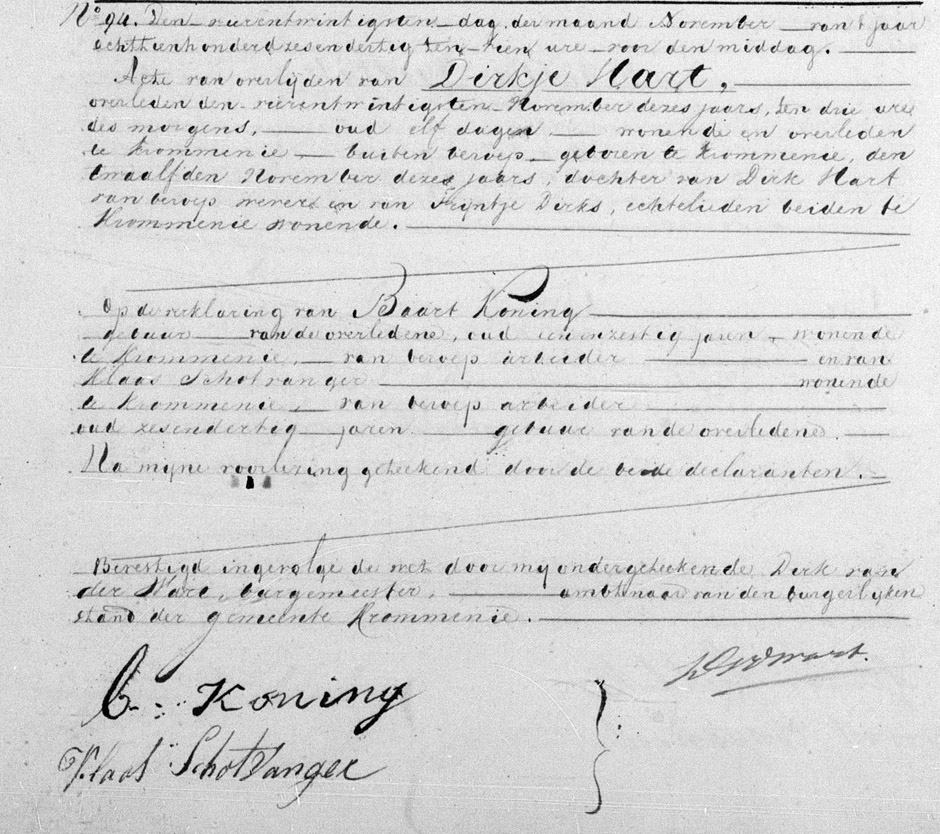 No 94. Den vierentwintigsten dag der maand November van t jaar
achttienhonderd zesendertig ten tien ure voor den middag.
Acte van overlijden van Dirkje Hart,
overleden den vierentwintigsten November dezes jaars, ten drie ure
des morgens, oud elf dagen wonende en overleden
te Krommenie buiten beroep geboren te Krommenie, den
twaalfden November dezes jaars, dochter van Dirk Hart
van beroep wever en van Trijntje Dirks, echtelieden beiden te
Krommenie wonende.
Op de verklaring van Baart Koning
gebuur van de overledene, oud eenenzestig jaren, wonende
te Krommenie, van beroep arbeider en van
Klaas Schotvanger wonende
te Krommenie, van beroep arbeider
oud zesendertig jaren gebuur van de overledene.
Na mijne voorlezing geteekend door de beide declaranten.
Bevestigd ingevolge de wet door mij ondergeteekende Dirk van
der Ware, burgemeester, ambtenaar van den burgerlijken
stand der gemeente Krommenie.
B. Koning
Klaas Schotvanger